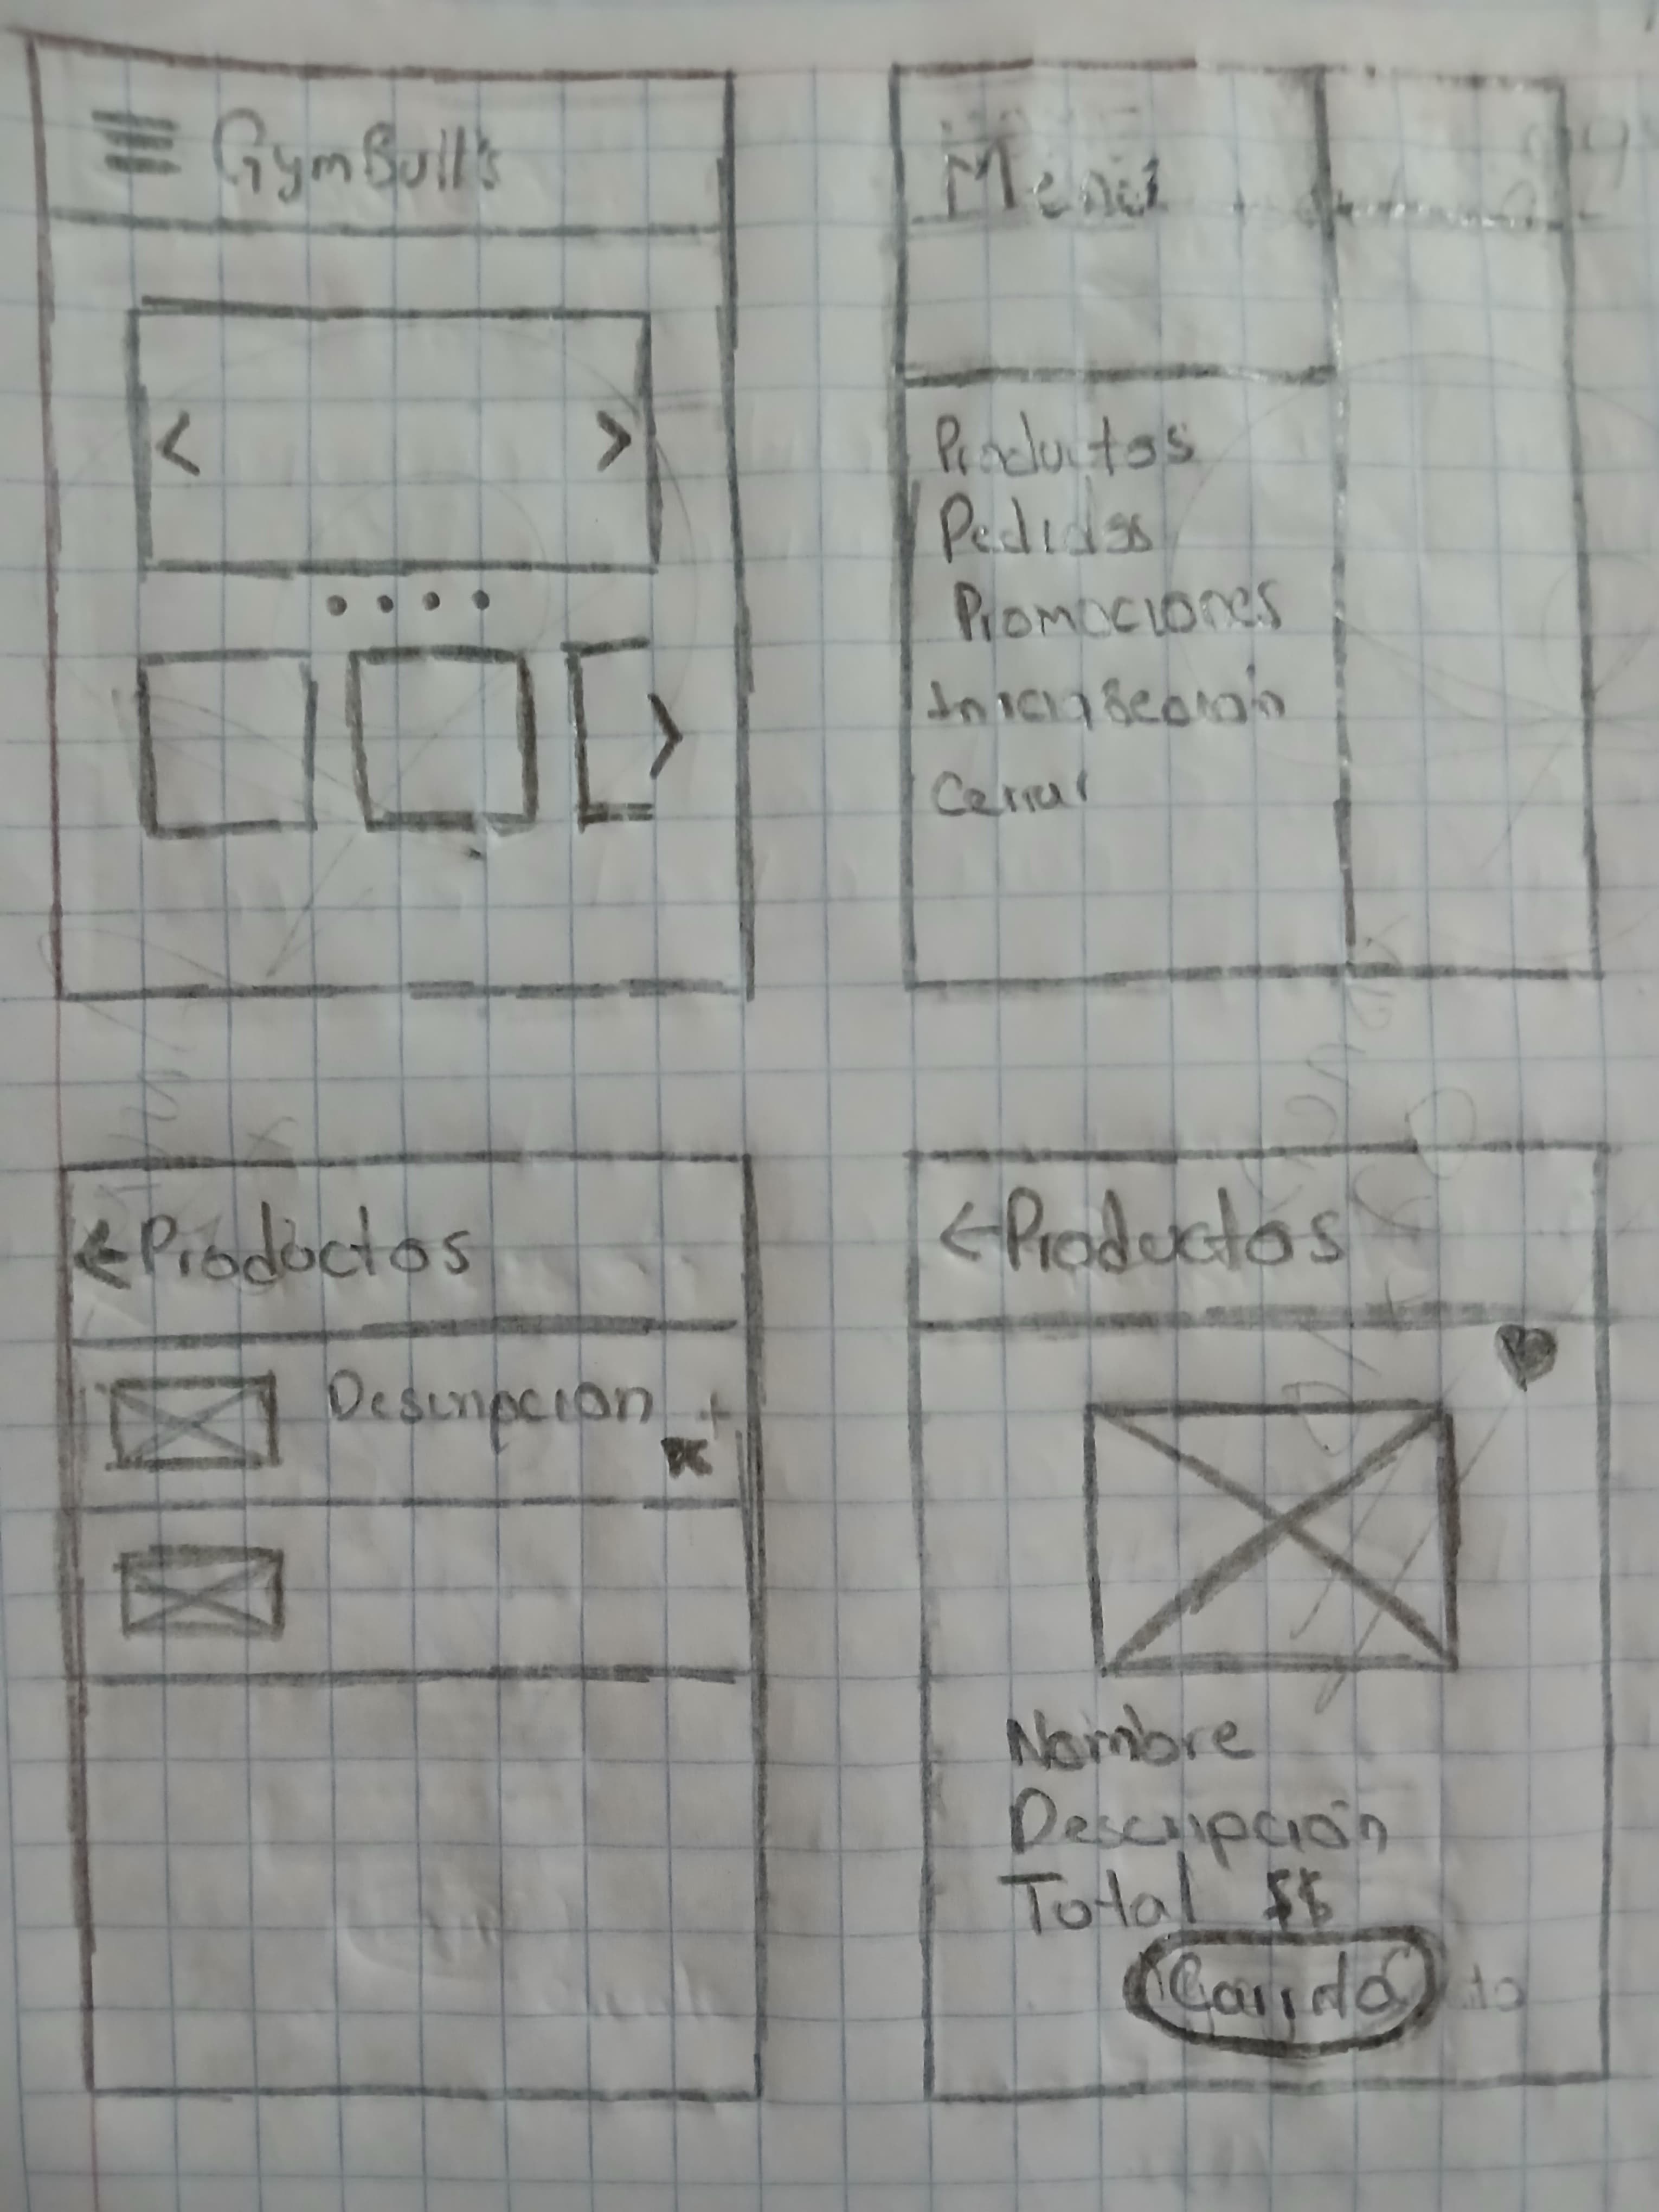 GymBull's
Menú
Productos
Pedidos
Promociones
Cerrar
Productos
Descripcion +
Productos
Nombre
Descripción
Total $$